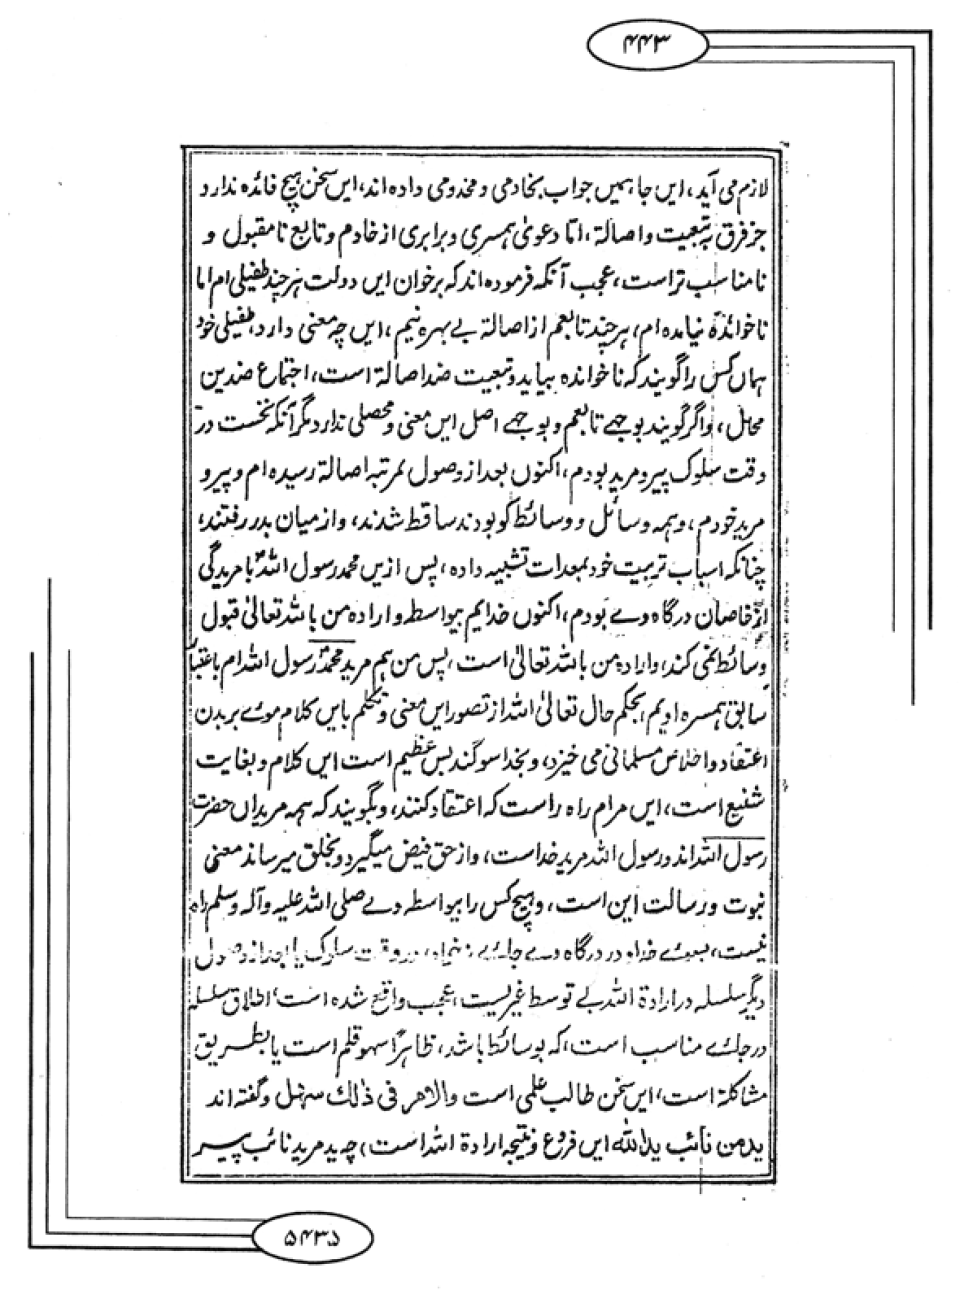 ۴۴۳
لازم می آید، ایں جا ہمیں جواب بخادمی و مخدومی داده اند، ایں سخن ہیچ فائده ندارد
جز فرق بہ تبعیت و اصالة، امّا دعویٰ ہمسری و برابری از خادم و تابع نامقبول و
نامناسب تر است، عجب آنکہ فرموده اند کہ بر خوان ایں دولت ہر چند طفیلی ام اما
ناخوانده نیامده ام، ہر چند تابعم از اصالة بے بہره نیم، ایں چہ معنی دارد، طفیلی خود
ہماں کس را گویند کہ ناخوانده بیاید و تبعیت ضد اصالة است، اجتماع ضدین
محال، واگر گویند بوجہے تابعم و بوجہے اصل ایں معنی و محصلی ندارد مگر آنکہ نخست در
وقت سلوک پیرو مرید بودم، اکنوں بعد از وصول بمرتبہ اصالة رسیده ام و پیرو
مرید خودم، و ہمہ وسائل و وسائط کو بودند ساقط شدند، و از میان بدر رفتند،
چنانکہ اسباب تربیت خود بمعدات تشبیہ داده، پس ازیں محمد رسول اللهؐ با مریدگی
از خاصان درگاه وے بودم، اکنوں خدایم بیواسطہ و اراده من بالله تعالیٰ قبول
وسائط نمی کند، و اراده من بالله تعالیٰ است، پس من ہم مرید محمدؐ رسول الله ام باعتبار
سابق ہمسره اویم، بحکم حال تعالیٰ الله از تصور ایں معنی و تکلم بایں کلام موے بر بدن
اعتقاد و اخلاص مسلمانی می خیزد، و بخدا سوگند بس عظیم است ایں کلام و بغایت
شنیع است، ایں مرام راه راست کہ اعتقاد کنند، و بگویند کہ ہمہ مریداں حضرت
رسول الله اند و رسول الله مرید خدا است، و از حق فیض میگیرد و بخلق میرساند معنی
نبوت و رسالت این است، و ہیچ کس را بیواسطہ وے صلی الله علیہ وآلہ وسلم راه
نیست، بسوئے خدا و در درگاه وے جائے نہ، در وقت سلوک یا بعد از وصول
دیگر سلسلہ در ارادة الله بے توسط غریست، عجب واقع شده است، اطلاق سلسلہ
در جائے مناسب است، کہ بوسائط باشد، ظاہراً سہو قلم است یا بطریق
مشاکلة است، ایں سخن طالب علمی است والامر فی ذالک سہل و گفتہ اند
ید من نائب ید الله ایں فروع و نتیجہ ارادة الله است، چہ ید مرید نائب پیر
۵۴۳۵